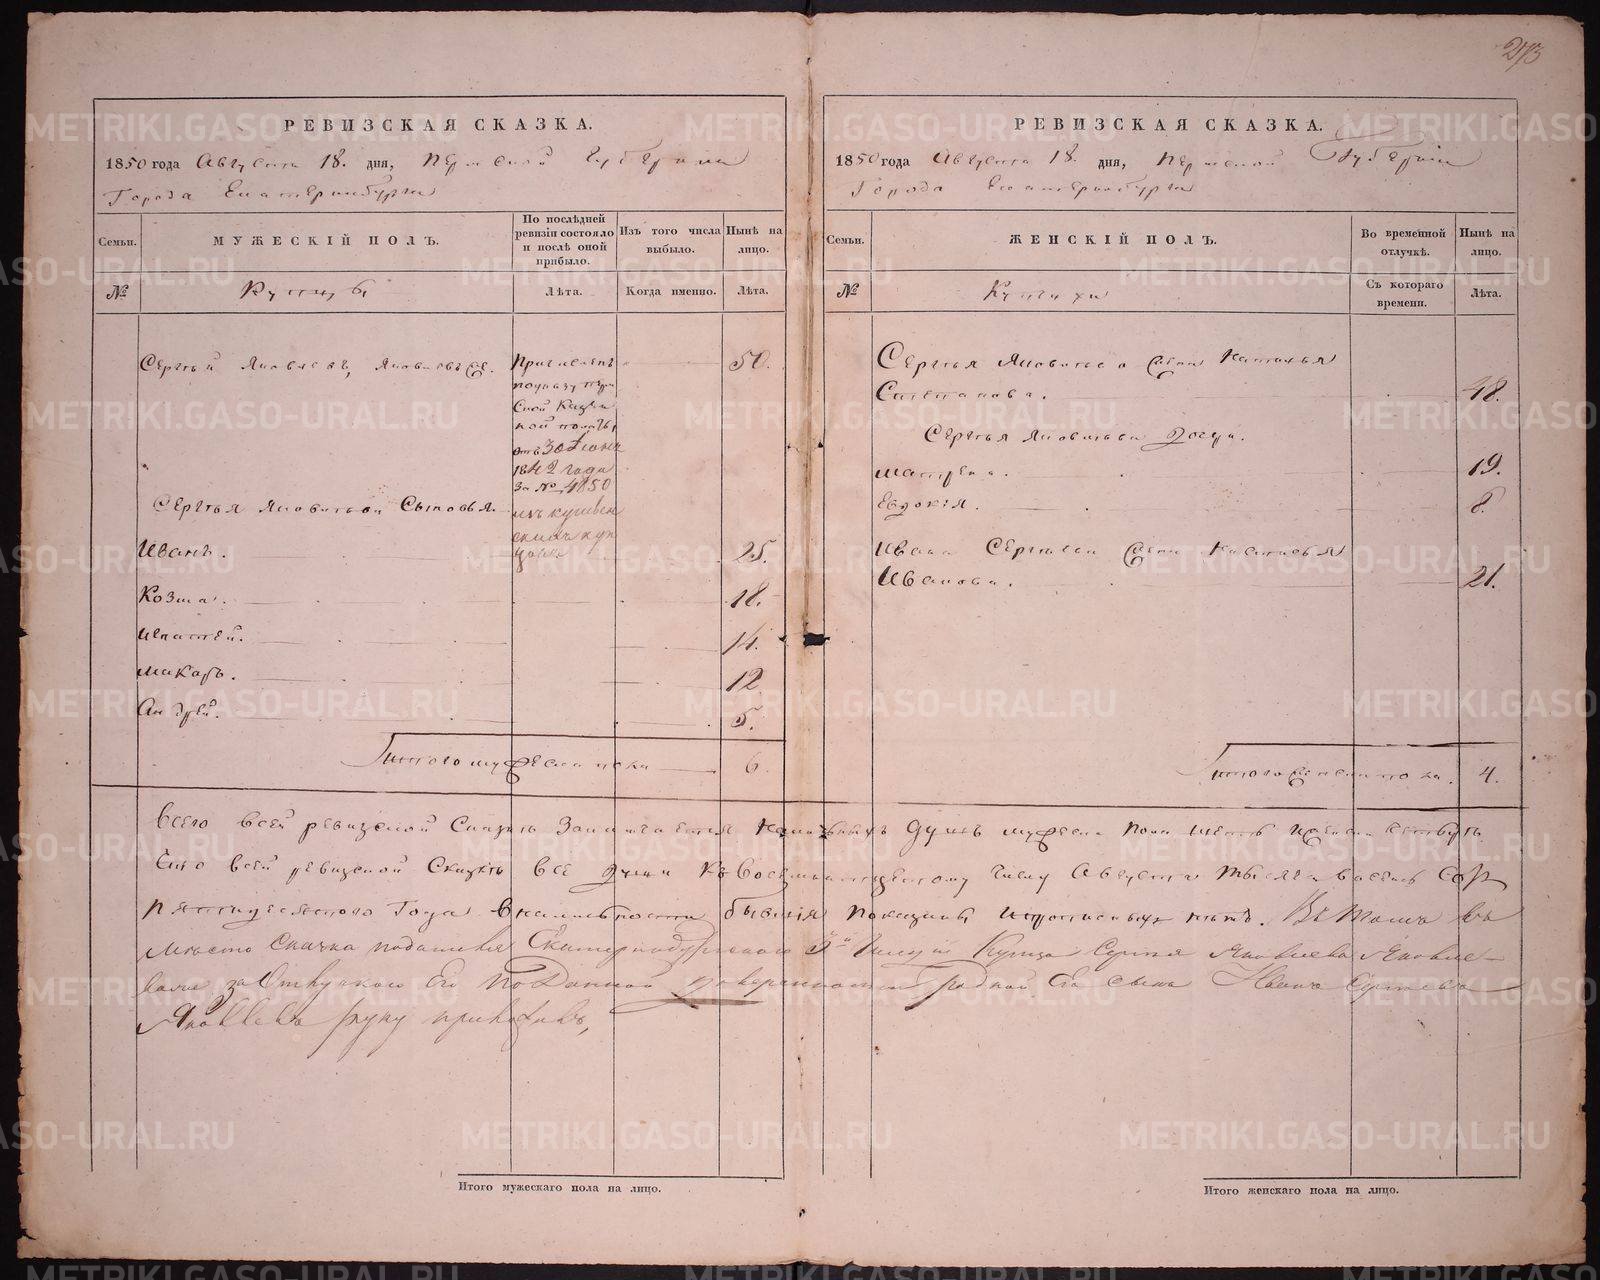 273
РЕВИЗСКАЯ СКАЗКА.
1850 года Августа 18. дня, Пермской Губернiи
Города Екатеринбурга
Семьи.
МУЖЕСКІЙ ПОЛЪ.
По послѣдней ревизіи состояло и послѣ оной прибыло.
Изъ того числа выбыло.
Нынѣ на лицо.
№
Купцы
Лѣта.
Когда именно.
Лѣта.
Сергѣй Яковлевъ, Яковлевъ 50.
Причисленъ
по указу Перм
ской Казен
ной полаты,
отъ 30 Iюня
1842 года
За № 4850
Сергѣя Яковлева Сыновья.
Иванъ. 25.
Козма. 18.
Ипатей. 14.
Макаръ. 12
Андрей. 5.
Итого мужеска пола 6.
РЕВИЗСКАЯ СКАЗКА.
1850 года Августа 18. дня, Пермской Губернiи
Города Екатеринбурга
Семьи.
ЖЕНСКІЙ ПОЛЪ.
Во временной отлучкѣ.
Нынѣ на лицо.
№
Купчихи
Съ котораго времени.
Лѣта.
Сергѣя Яковлева жена Наталья
Степанова. 48.
Сергѣя Яковлева дочери.
Матрена. 19.
Евдокiя. 8.
Ивана Сергѣева жена Настасья
Иванова. 21.
Итого женска пола. 4.
Всего в сей ревизской Сказкѣ Заключается наличныхъ душъ мужеска пола шесть женска четыре
Что в сей ревизской Сказкѣ все души къ восемнадцатому числу Августа тысяча восемь сотъ
пятидесятого Года в наличности бывшiя показаны и прописныхъ нѣтъ. Въ томъ въ
мѣсто скаска подателя Екатеринбургского 3й Гилдiи Купца Сергѣя Яковлева Яковле-
ва за Отлучкою Его По Данной доверенности родной Его сынъ Иванъ Сергеевъ
Яковлевъ руку приложилъ,
Итого мужескаго пола на лицо.
Итого женскаго пола на лицо.
METRIKI.GASO-URAL.RU